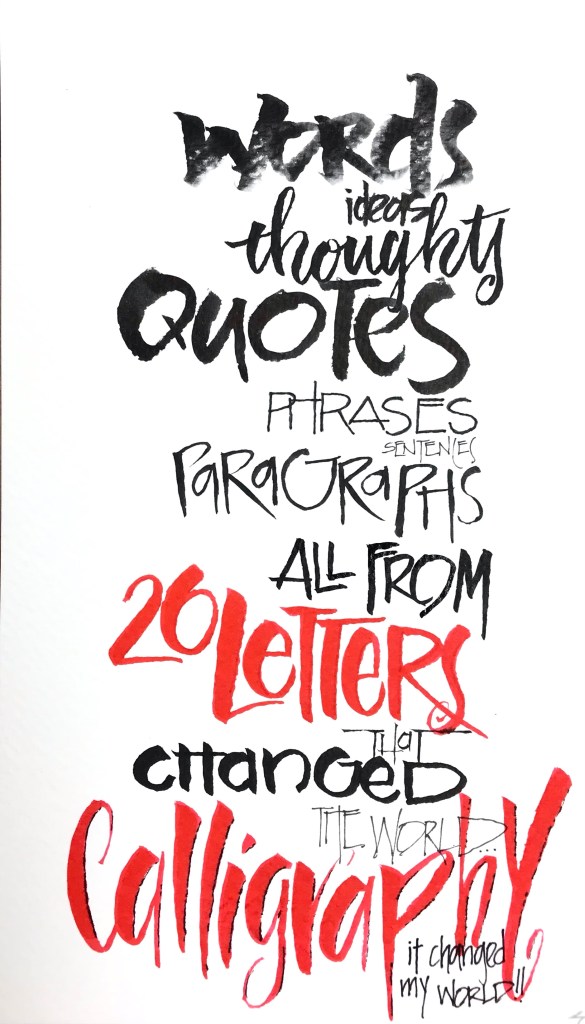 words
ideas
thoughts
QUOTES
PHRASES
SENTENCES
PARAGRAPHS
ALL FROM
26 LETTERS
THAT
CHANGED
THE WORLD...
Calligraphy
it changed
my WORLD!!